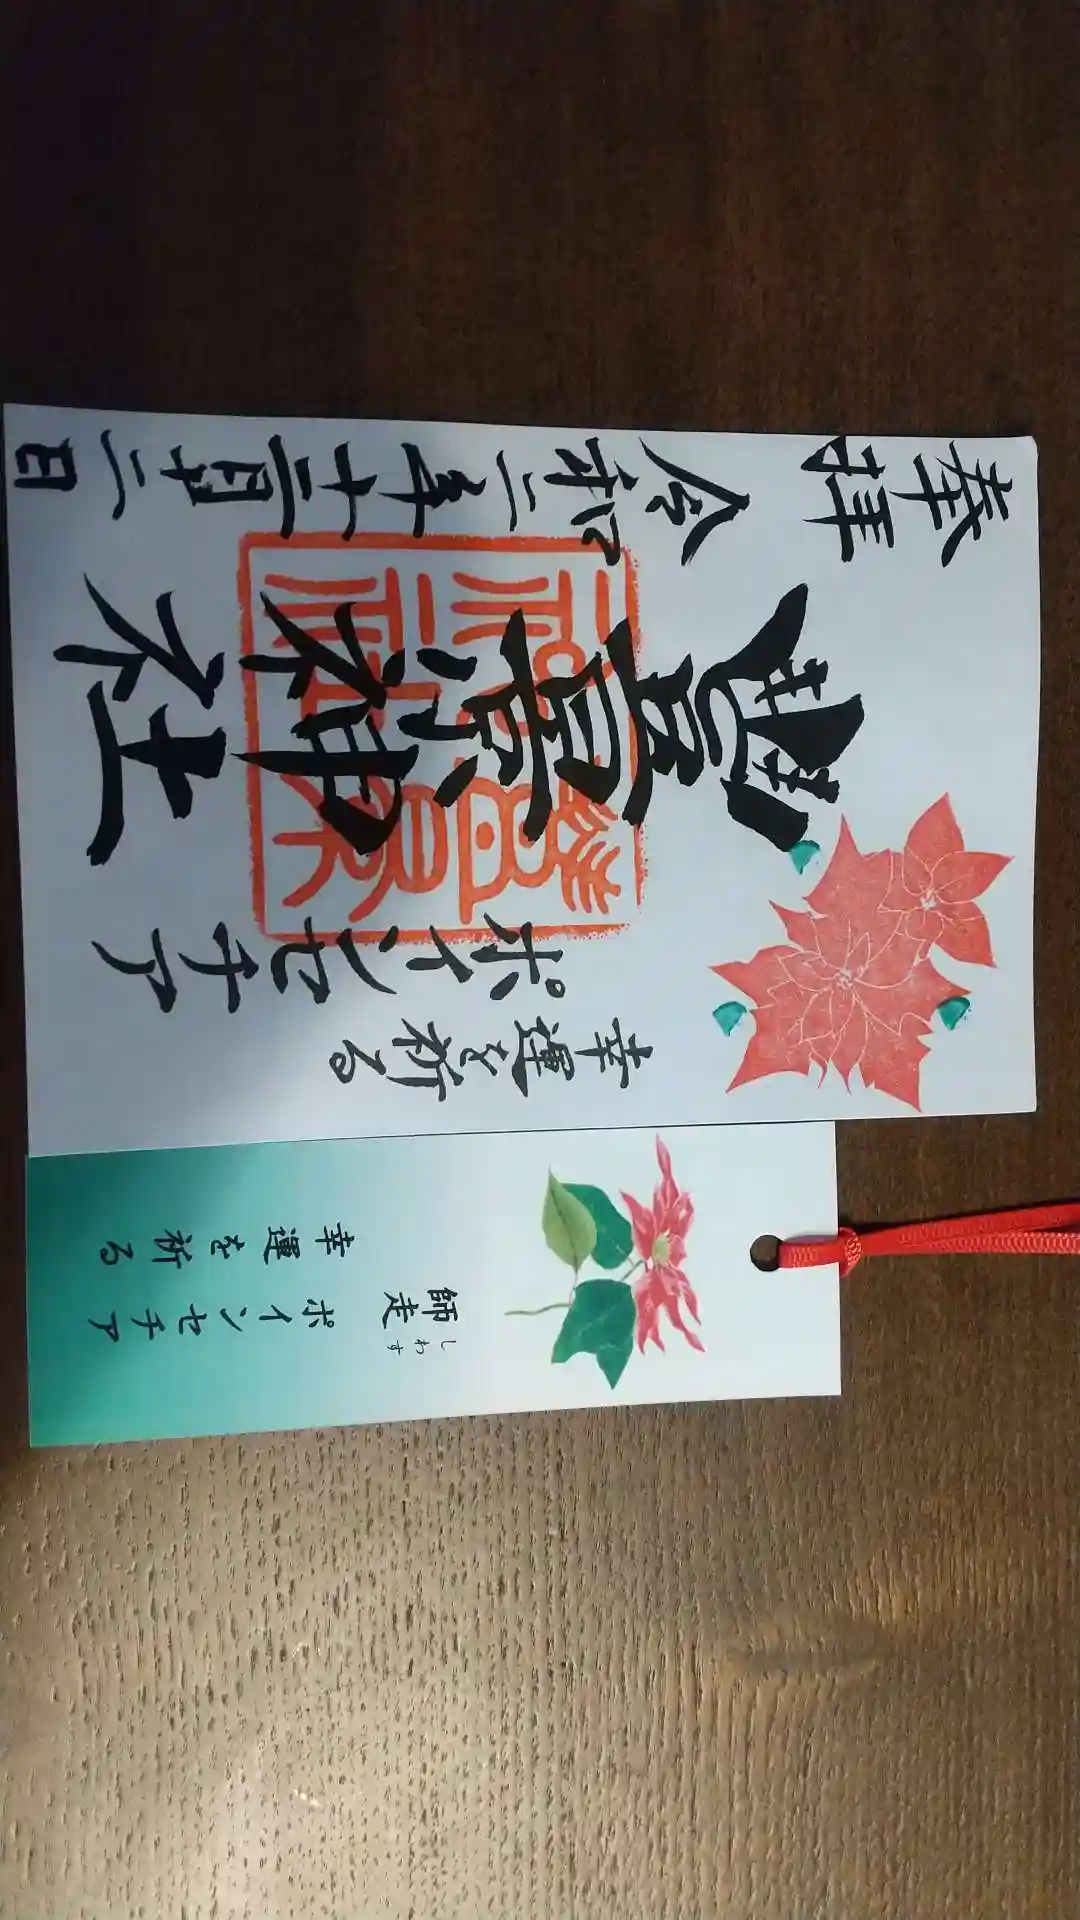 師走
しわす
ポインセチア
幸運を祈る
幸運を祈る
ポインセチア
豐景神社
奉拝
令和二年十二月二日